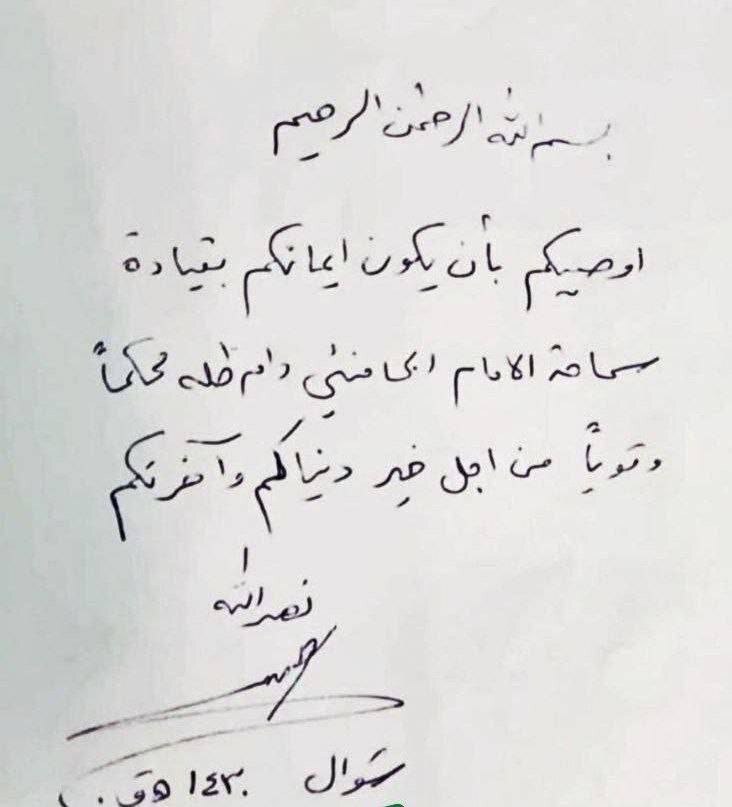 بسم الله الرحمن الرحيم
اوصيكم بأن يكون ايمانكم بقيادة
سماحة الامام الخامنئي دام ظله محكماً
وقوياً من اجل خير دنياكم وآخرتكم
نصر الله
شوال ١٤٣٠ هـ ق